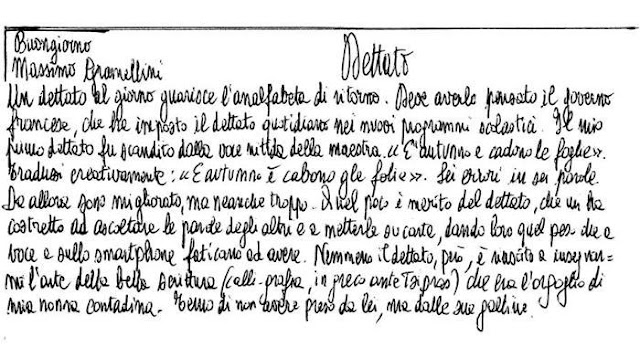 Buongiorno
Massimo Gramellini
Dettato
Un dettato al giorno guarisce l'analfabeta di ritorno. Deve averlo pensato il governo
francese, che ha imposto il dettato quotidiano nei nuovi programmi scolastici. Il mio
primo dettato fu scandito dalla voce nitida della maestra. «E' autunno e cadono le foglie».
Tradussi creativamente: «E autunn è cabono gle folie». Sei errori in sei parole.
Da allora sono migliorato, ma neanche troppo. Quel poco è merito del dettato, che mi ha
costretto ad ascoltare le parole degli altri e a metterle su carta, dando loro quel peso che a
voce e sullo smartphone faticano ad avere. Nemmeno il dettato, però, è riuscito a insegnar-
mi l'arte della bella scrittura (calli-grafia, in greco ante Tsipras) che era l'orgoglio di
mia nonna contadina. Temo di non avere preso da lei, ma dalle sue galline.